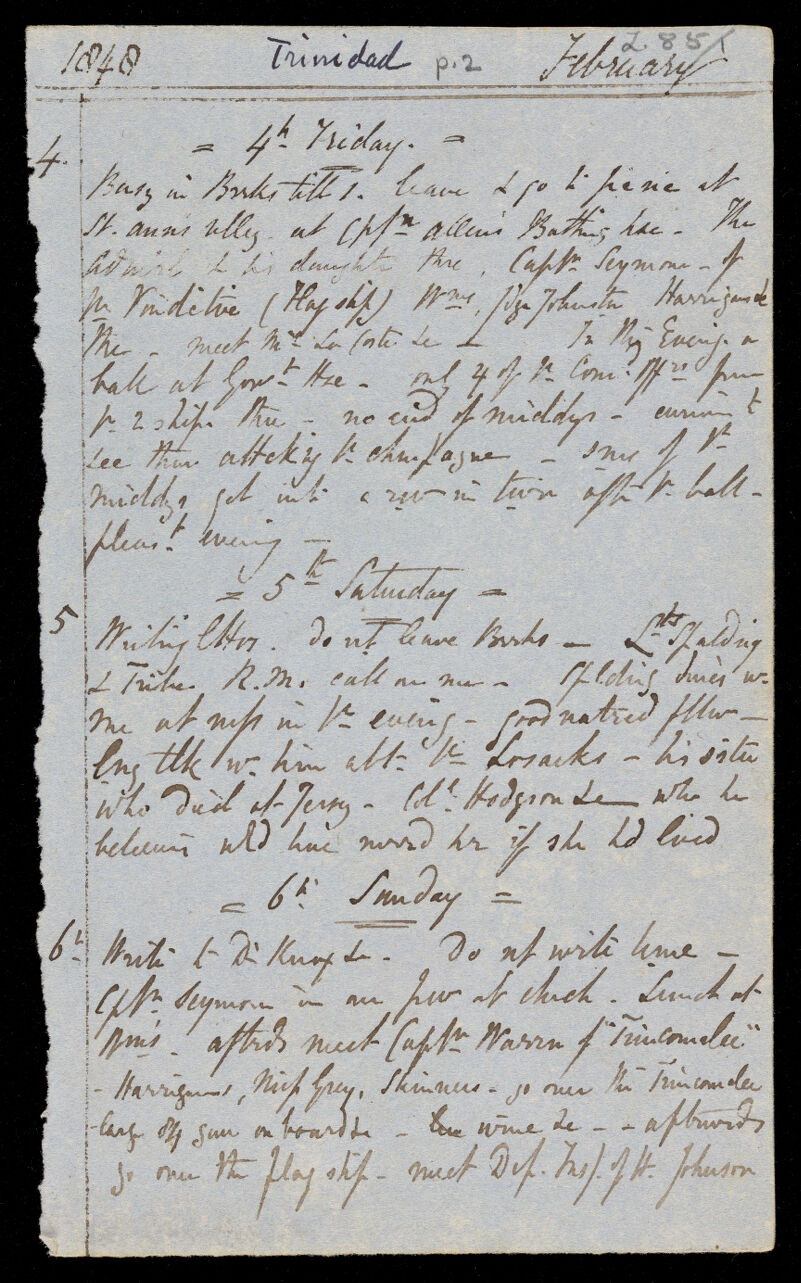 1848 Trinidad p.2 February 285
= 4th Friday. =
4. Busy in Brrks till 1. leave & go to picnic at
St. anns vlley at Cptn allens Bathing hse - The
admirl & his daughter thre, Captn Seymour - of
ye Vindictive (Flag ship) Wms, Jdge Johnstn Harrigans &c
thre - meet Mr La Coste &c - In the Eveng a
ball at Govt Hse - only 4 of ye Com. Offrs from
ye 2 ships thre - no end of middys - curious to
see them attckg ye champagne - sme of ye
middys get into a row in town aftr ye ball -
pleast evening -
= 5th Saturday =
5 Writing lttrs. do nt leave Brrks - Lts Spalding
& Tribe R.M. call on me - Splding dines w.
me at mess in ye evening - good natred fllw -
lng tlk w. him abt ye Losacks - his sister
who died at Jersey - Col. Hodgson &c who he
believes wld have marrd her if she hd lived
= 6th Sunday =
6th Write to Dr Knox &c. Do nt write home -
Cptn Seymour in our pew at chch. Lunch at
Wms. aftrds meet Captn Warren of "Trincomalee"
- Harrigans, Miss Grey, Skinners - go over the Trincomalee
large gun on board &c - wine &c - - afterwards
go over the flag ship - meet Dep. Insp. of H. Johnson